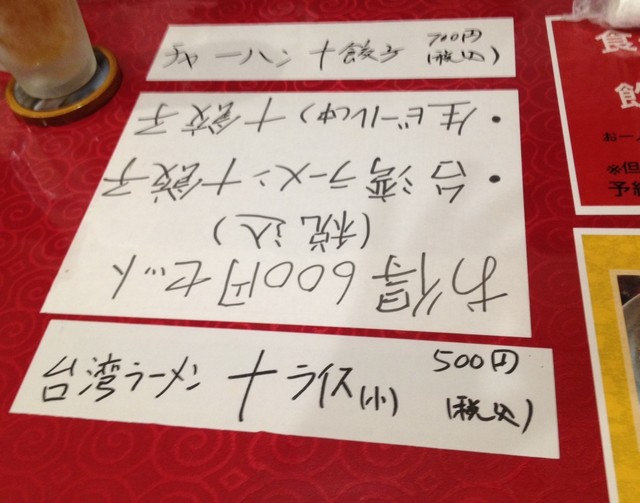 チャーハン十餃子 700円
(税込)
お得600円セット
(税込)
・台湾ラーメン十餃子
・生ビール(中)十餃子
台湾ラーメン十ライス(小) 500円
(税込)
食
飲
お一人
※但
予約